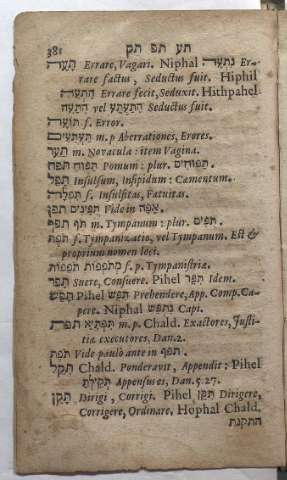 381 תע תפ תק
תָּעָה Errare, Vagari. Niphal נִתְעָה Er-
rare factus, Seductus fuit. Hiphil
הִתְעָה Errare fecit, Seduxit. Hithpahel
הִתְעַתַּע vel הִתְעָה Seductus fuit.
תּוֹעָה f. Error.
תַּעְתֻּעִים m. p Aberrationes, Erores.
תַּעַר m. Novacula: item Vagina.
תפח תַּפּוּחַ Pomum: plur. תַּפּוּחִים.
תָּפֵל Insulsum, Insipidum: Cæmentum.
תִּפְלָה f. Insulsitas, Fatuitas.
תפן תֻּפִינִים Vide in אָפָה.
תפף תֹּף m. Tympanum: plur. תֻּפִּים.
תֹּפֶת f. Tympanizatio, vel Tympanum. Est &
proprium nomen loci.
תּוֹפְפוֹת f. p. Tympanistriæ.
תָּפַר Suere, Consuere. Pihel תִּפֵּר Idem.
תָּפַשׂ Pihel תִּפֵּשׂ Prehendere, App. Comp. Ca-
pere. Niphal נִתְפַּשׂ Capi.
תפת תִּפְתָּיֵא m. p. Chald. Exactores, Justi-
tiæ executores, Dan. 2.
תֹּפֶת Vide paulo ante in תפף.
תְּקַל Chald. Ponderavit, Appendit; Pihel
תְּקִילְתָּ Appensus es, Dan. 5. 27.
תָּקַן Dirigi, Corrigi. Pihel תִּקֵּן Dirigere,
Corrigere, Ordinare, Hophal Chald.
התקנת